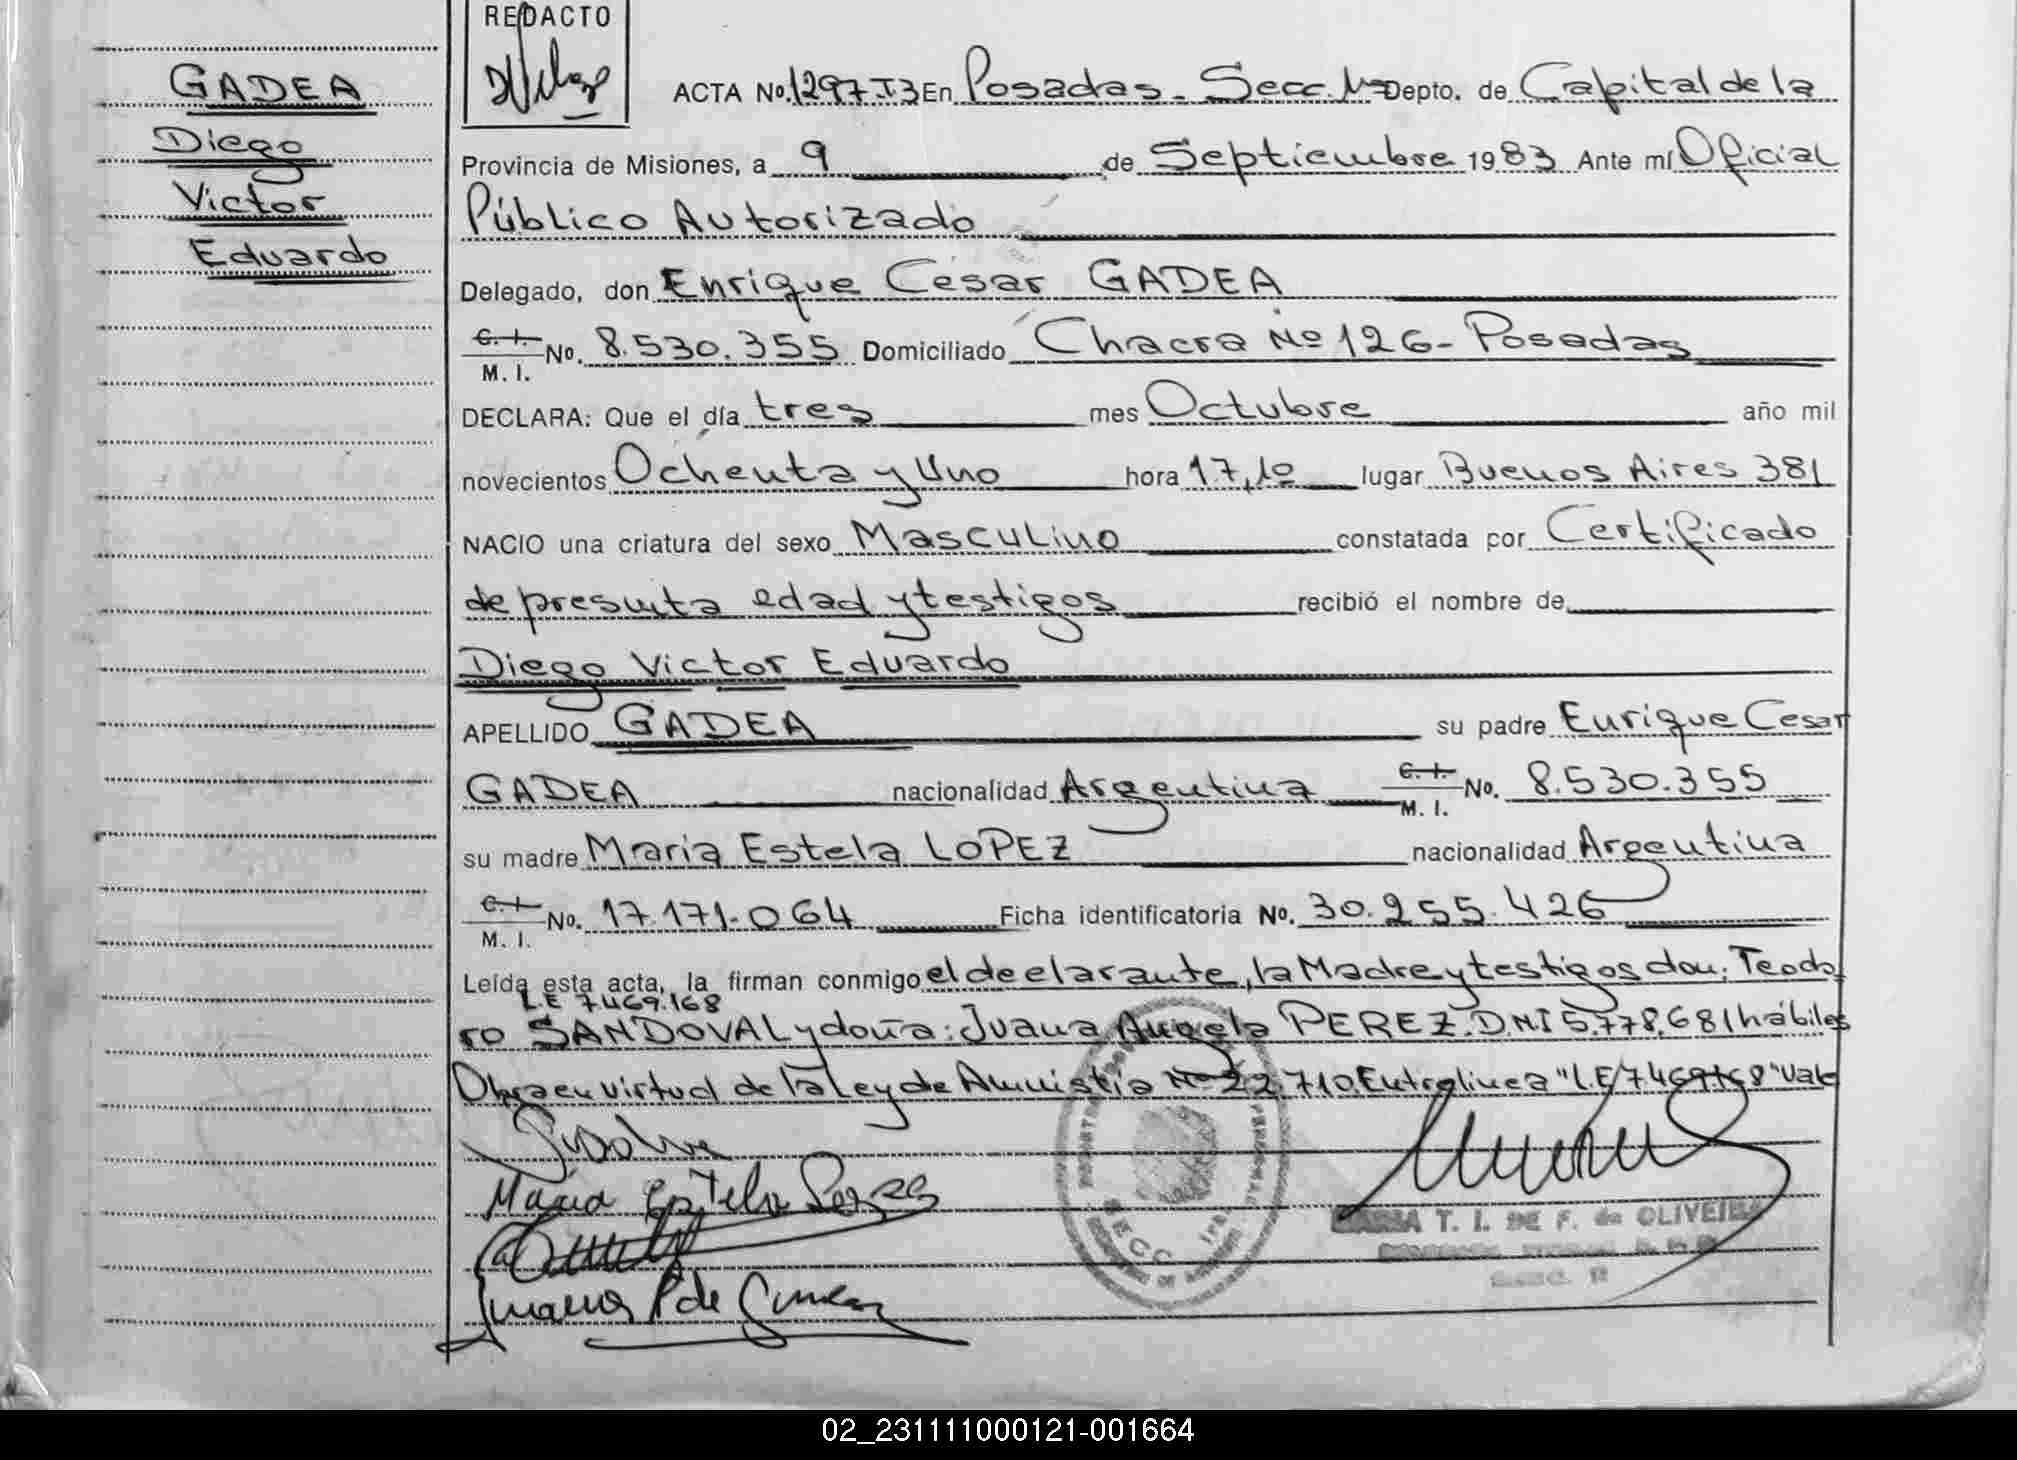 REDACTO
GADEA
Diego
Victor
Eduardo
ACTA No. 1297 T3 En Posadas - Secc. 1ª Depto. de Capital de la
Provincia de Misiones, a 9 de Septiembre 1983 Ante mí Oficial
Público Autorizado
Delegado, don Enrique César GADEA
C. I. / M. I. No. 8.530.355 Domiciliado Chacra Nº 126 - Posadas
DECLARA: Que el día tres mes Octubre año mil
novecientos Ochenta y Uno hora 17,10 lugar Buenos Aires 381
NACIO una criatura del sexo Masculino constatada por Certificado
de presunta edad y testigos recibió el nombre de
Diego Victor Eduardo
APELLIDO GADEA su padre Enrique Cesar
GADEA nacionalidad Argentina C. I. / M. I. No. 8.530.355
su madre Maria Estela LOPEZ nacionalidad Argentina
C. I. / M. I. No. 17.171.064 Ficha identificatoria No. 30.255.426
Leída esta acta, la firman conmigo el declarante, la Madre y testigos don: Teodo
LE 7469.168
ro SANDOVAL y doña: Juana Angela PEREZ. D.N.I 5.778.681 hábiles
Obra en virtud de la Ley de Amnistia Nº 22.710. Entrelinea "L.E 7469168" Vale
Maria Estela
Juana P de
MARIA T. I. DE F. de OLIVEIRA
SECC.
02_231111000121-001664